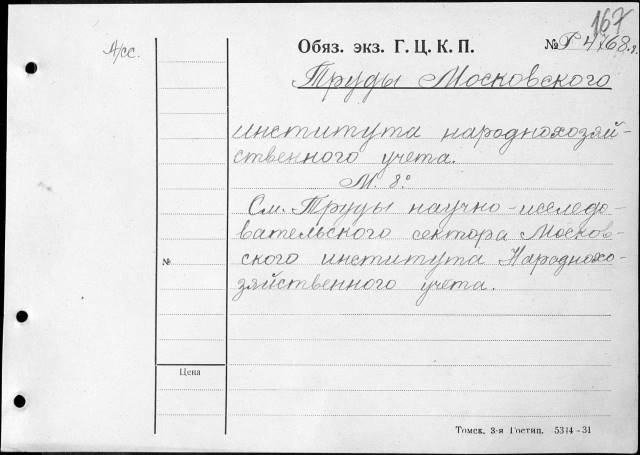 167
А/сс.
Обяз. экз. Г. Ц. К. П. № Р 4768.
Труды Московского
института народнохозяй-
ственного учета.
М. 8°
См. Труды научно-иследо-
вательского сектора Москов-
ского института Народнохо-
зяйственного учета.
№
Цена
Томск. 3-я Гостип. 5314-31